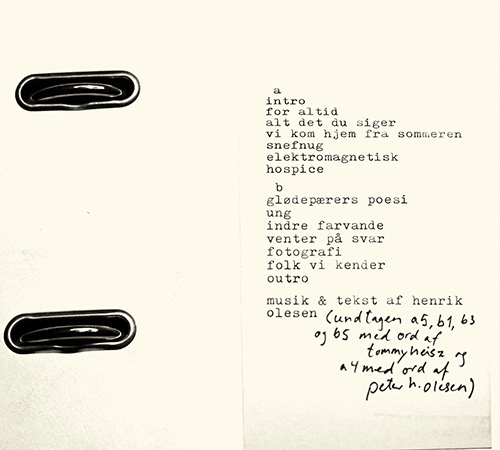 a
intro
for altid
alt det du siger
vi kom hjem fra sommeren
snefnug
elektromagnetisk
hospice
b
glødepærers poesi
ung
indre farvande
venter på svar
fotografi
folk vi kender
outro
musik & tekst af henrik
olesen (undtagen a5, b1, b3
og b5 med ord af
tommy heisz og
a4 med ord af
peter h. olesen)